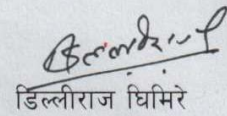 डिल्लीराज घिमिरे